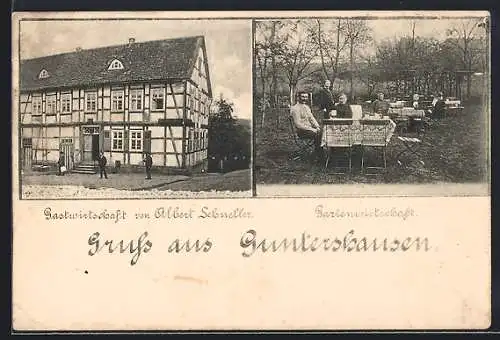 Gastwirtschaft von Albert Schneller.
Gartenwirtschaft.
Gruss aus Guntershausen.